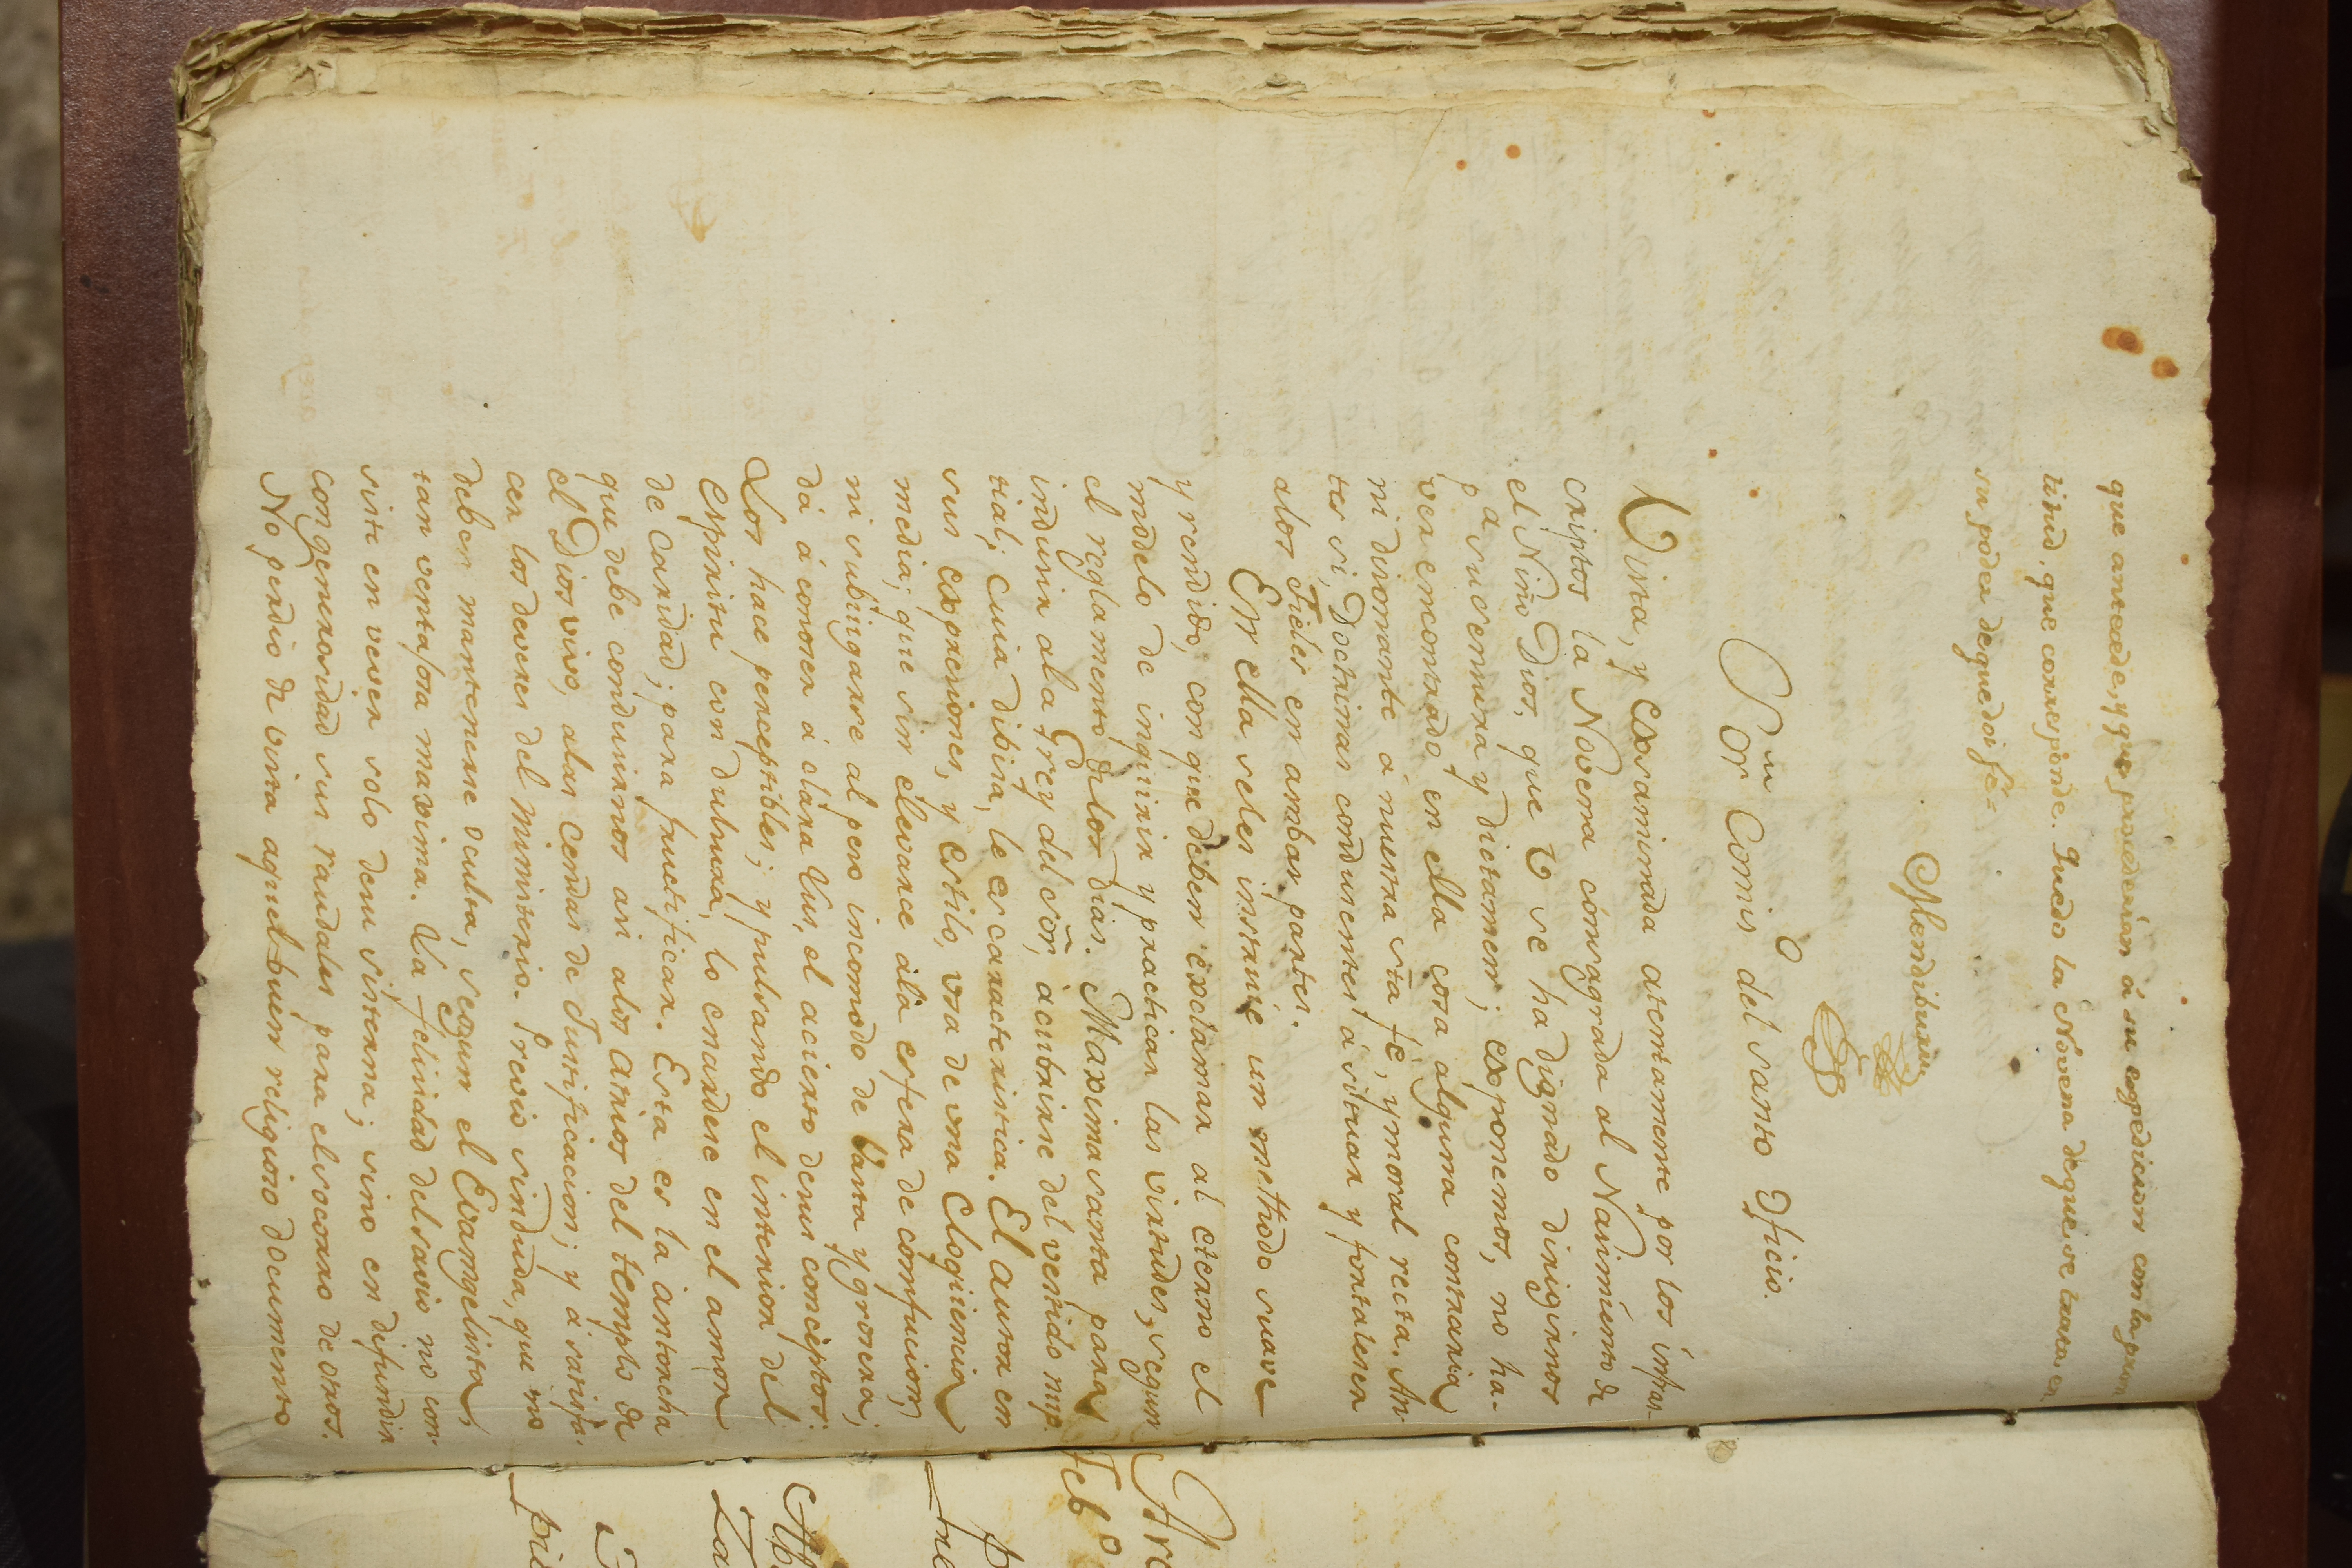 que antecede, y que procederán á su expedicion con la pron
titud, que corresponde. Quedo la Novena de que se trata en
su poder de que doi fé=
Mendiburu
Sor. Comiso del santo Oficio.
Vista, y exsaminada atentamente por los infras-
criptos la Novena consagrada al Nasimiento de
el Niño Dios, que V se ha dignado dirigirnos
pa su censura y dictamen; exponemos, no ha-
ver encontrado en ella cosa alguna contraria
ni disonante á nuestra sta fé, y moral recta. An-
tes si, Doctrinas conducentes á situar y fortalecer
alos Fieles en ambas partes.
En ella seles instruie un methodo suave
y rendido, con que deben exclamar al eterno el
modelo de inquirir y practicar las virtudes, segun
el reglamento delos dias. Maxima santa para
inducir ala Grey del Sōr, á cubrirse del vestido nup-
tial; cuia dibisa, le es caracteristica. El autor en
sus expreciones, y estilo, usa de una Eloqüencia
media; que sin elevarce ala esfera de confucion,
ni subiugarse al peso incomodo de basta y grosera;
dá á conocer á clara lus, el acierto desus conceptos:
Los hace perceptibles; y pulsando el interior del
Espiritu con dulsura, lo enardese en el amor
de Caridad; para fructificar. Esta es la antorcha
que debe conducirnos asi alos atrios del templo de
el Dios vivo, alas cendas de Justificacion; y á satisfa-
cer los deveres del ministerio. Previo sin duda, que no
deben mantenerse oculta, segun el Evangelista,
tan ventajosa maxima. La felicidad del savio no con-
siste en vever solo desu sisterna; sino en difundir
con generosidad sus raudales para el socorro de otros.
No perdio de vista aquel buen religioso documento